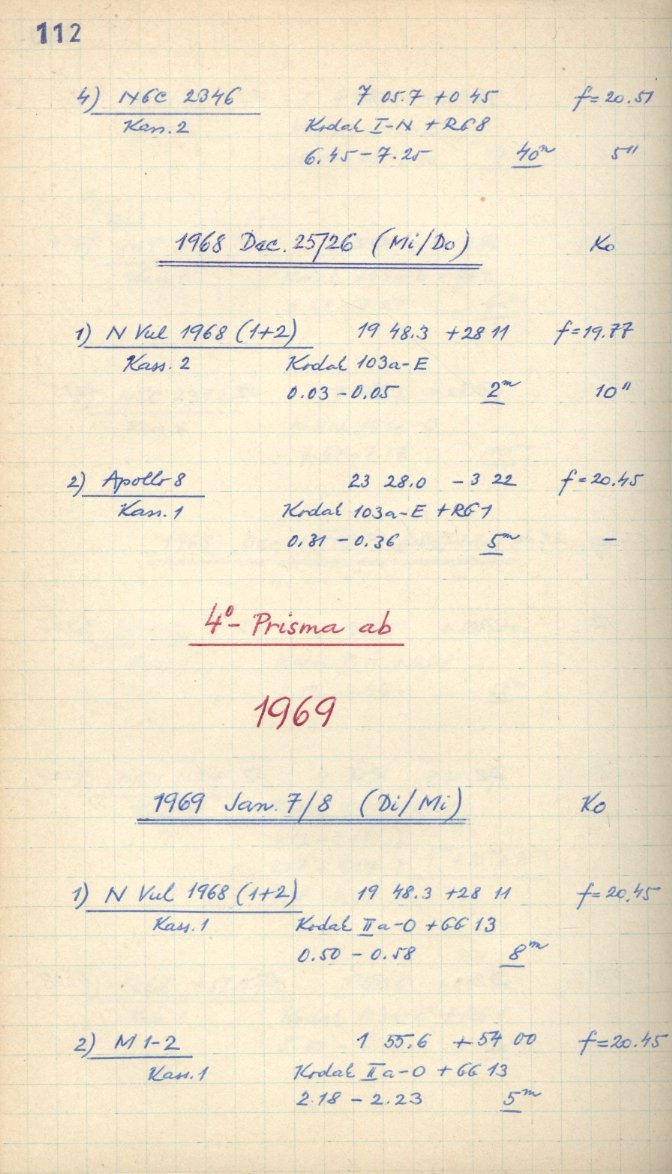 112
4) NGC 2346 7 05.7 +0 45 f=20.51
Kass. 2 Kodak I-N + RG8
6.45 – 7.25 40m 5"
1968 Dec. 25/26 (Mi/Do) Ko
1) N Vul 1968 (1+2) 19 48.3 +28 11 f=19.77
Kass. 2 Kodak 103a-E
0.03 – 0.05 2m 10"
2) Apollo 8 23 28.0 –3 22 f=20.45
Kass. 1 Kodak 103a-E + RG1
0.31 – 0.36 5m –
4°- Prisma ab
1969
1969 Jan. 7/8 (Di/Mi) Ko
1) N Vul 1968 (1+2) 19 48.3 +28 11 f=20.45
Kass. 1 Kodak IIa-O + GG 13
0.50 – 0.58 8m
2) M 1-2 1 55.6 +54 00 f=20.45
Kass. 1 Kodak IIa-O + GG 13
2.18 – 2.23 5m